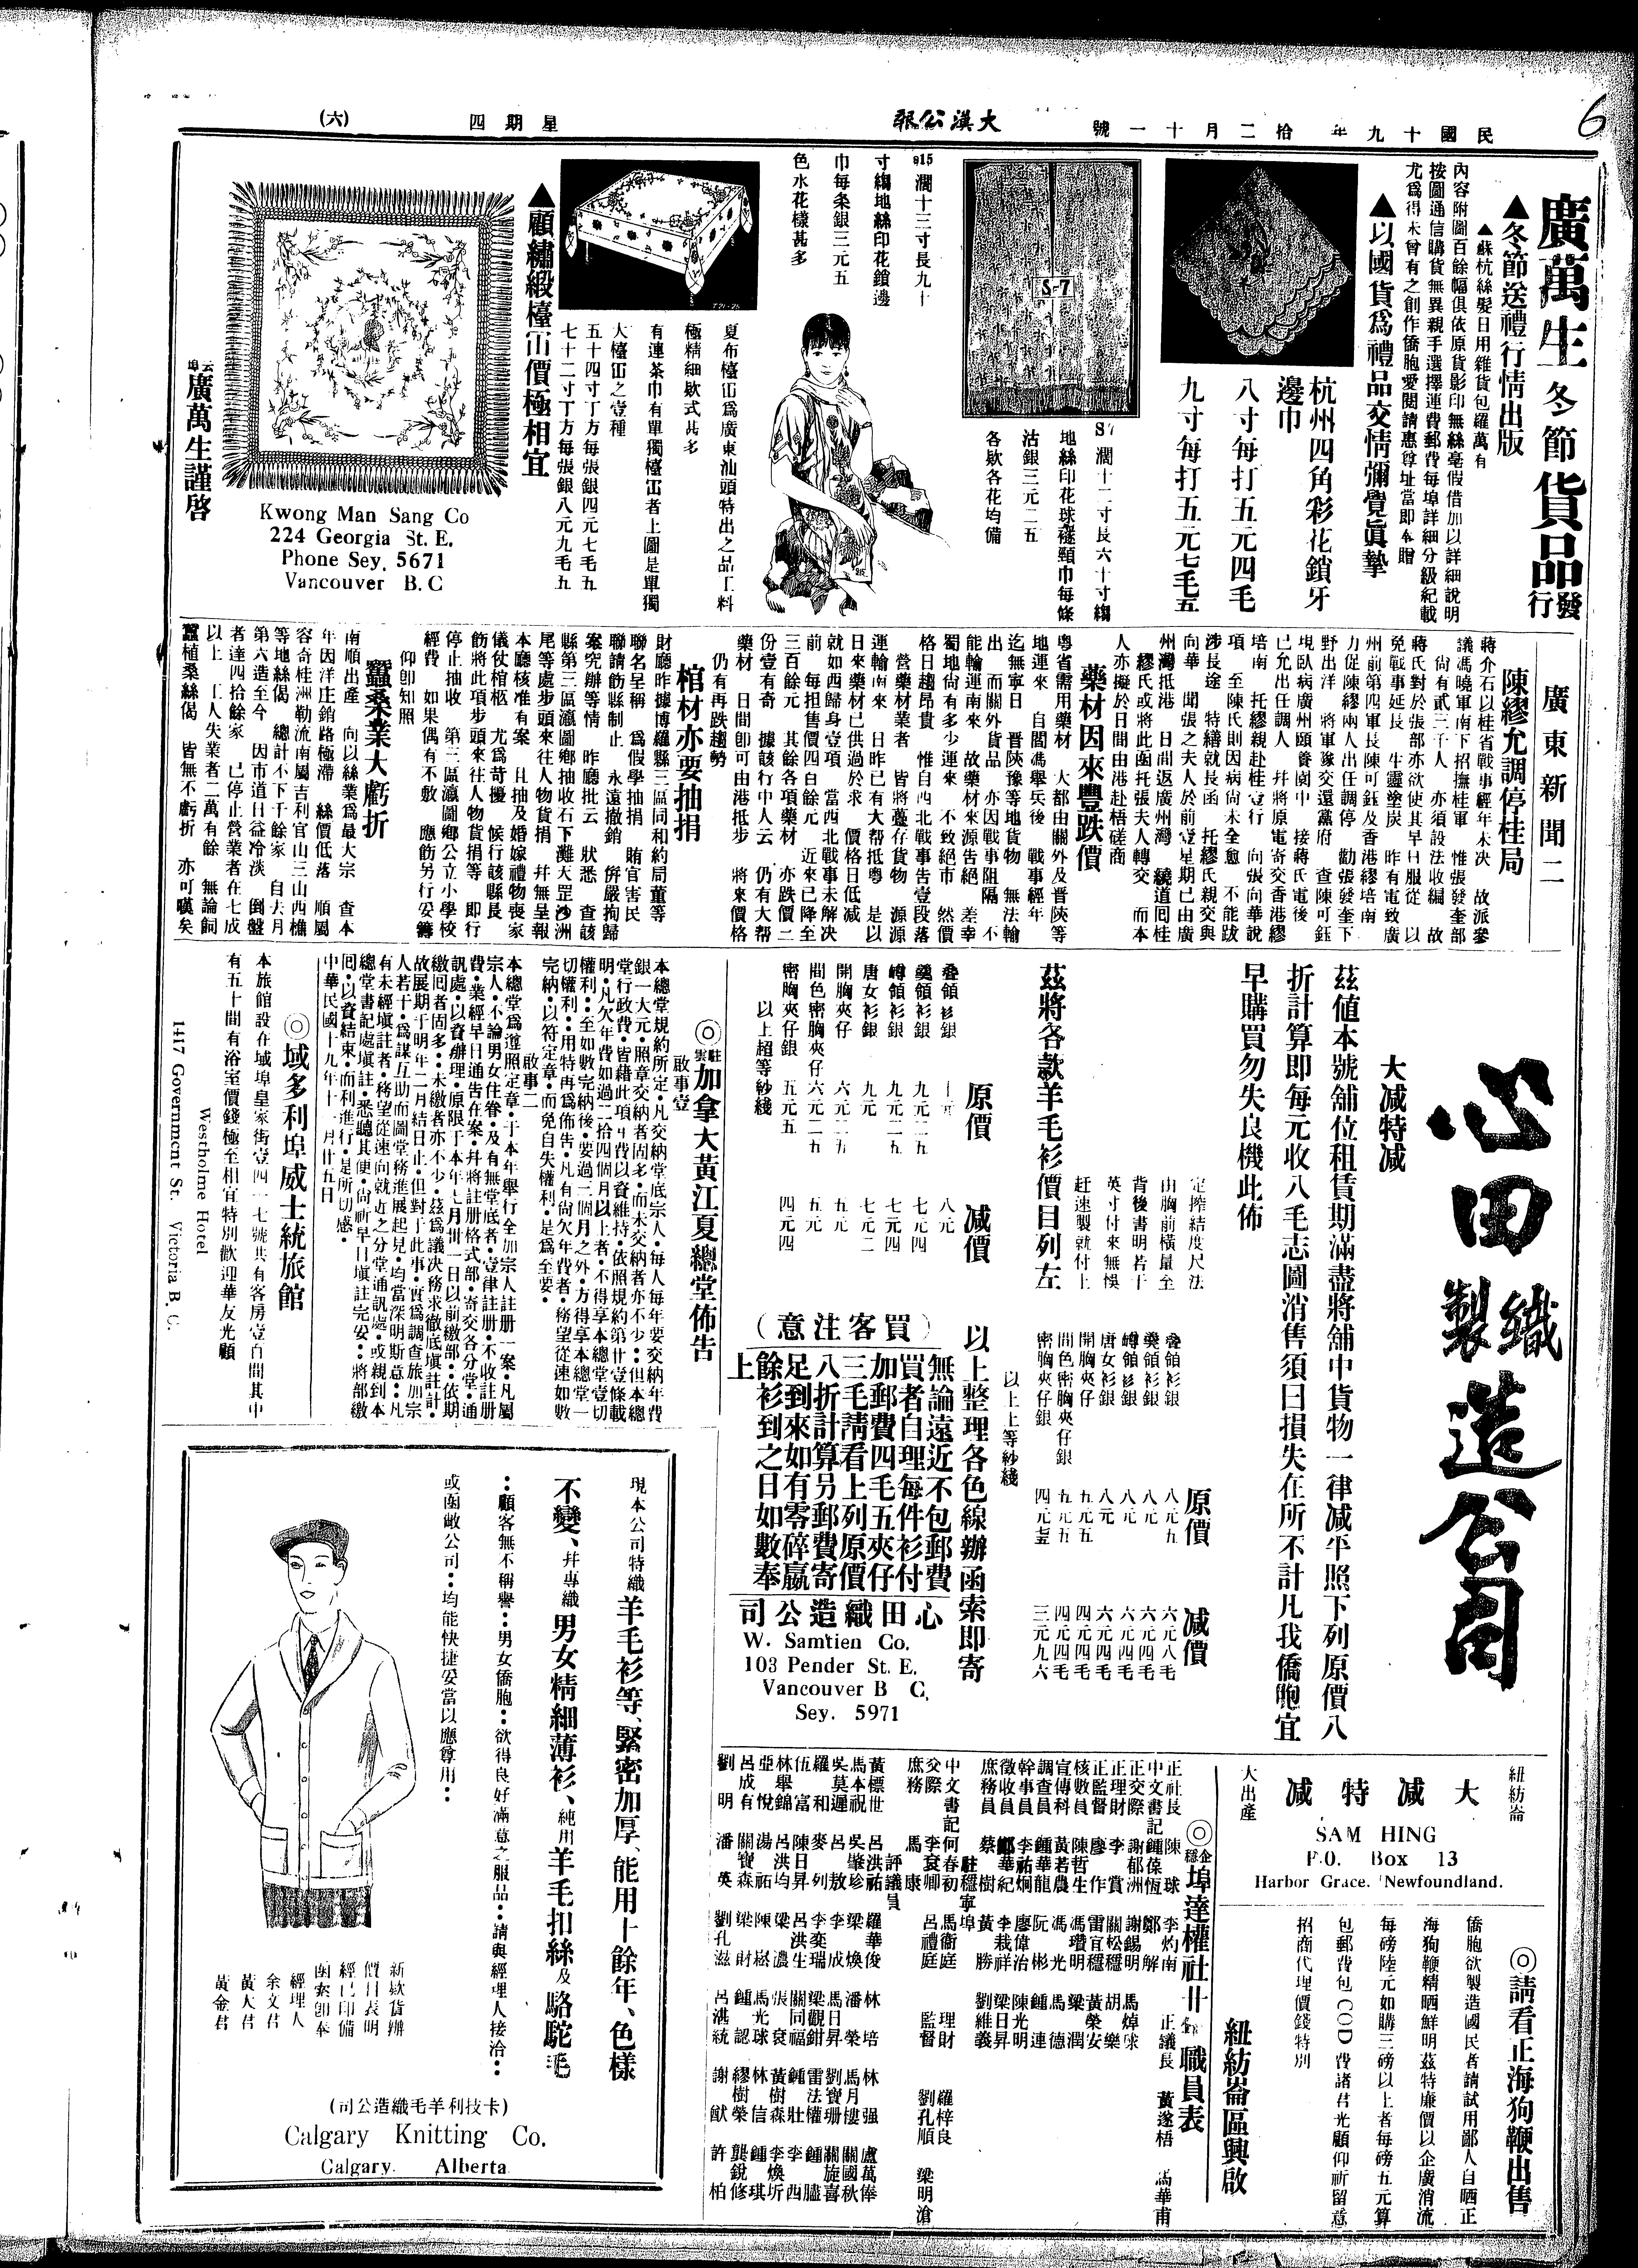 6
民國十九年 拾二月十一號
大漢公報
星期四
(六)
廣萬生冬節貨品發行
▲冬節送禮行情出版
▲蘇杭絲髮日用雜貨包羅萬有
內容附圖百餘幅俱依原貨影印無絲毫假借加以詳細說明
按圖通信購貨無異親手選擇運費郵費每埠詳細分級紀載
尤爲得未曾有之創作僑胞愛閱請惠尊址當即奉贈
▲以國貨爲禮品交情彌覺眞摯
杭州四角彩花鎖牙
邊巾
八寸每打五元四毛
九寸每打五元七毛五
S-7
S7 濶十二寸長六十寸縐
地絲印花球襚頸巾每條
沽銀三元二五
各欵各花均備
915 濶十三寸長九十
寸縐地絲印花鎖邊
巾每条銀三元五
色水花樣甚多
T21-25
夏布檯㘝爲廣東汕頭特出之品工料
極精細欵式甚多
有連茶巾有單獨檯㘝者上圖是單獨
大檯㘝之壹種
五十四寸丁方每張銀四元七毛五
七十二寸丁方每張銀八元九毛五
▲顧繡緞檯㘝價極相宜
Kwong Man Sang Co
224 Georgia St. E.
Phone Sey. 5671
Vancouver B. C
雲埠廣萬生謹啓
廣東新聞二
陳繆允調停桂局
蔣介石以桂省戰事經年未決 故派參
議馮曉軍南下招撫桂軍 惟張發奎部
尙有貳二千人 亦須設法收編 故
蔣氏對於張部亦欲使其早日服從 以
免戰事延長 生靈塗炭 昨有電致廣
州前第四軍長陳可鈺及香港繆培南
力促陳繆兩人出任調停 勸張發奎下
野出洋 將軍隊交還黨府 查陳可鈺
現臥病廣州頤養園中 接蔣氏電後
已允出任調人 幷將原電寄交香港繆
培南 托繆親赴桂壹行 向張向華說
項 至陳氏則因病尙未全愈 不能跋
涉長途 特繕就長函 托繆氏親交與
向華 聞張之夫人於前壹星期已由廣
州灣抵港 日間返廣州灣 繞道囘桂
繆氏或將此函托張夫人轉交 而本
人亦擬於日間由港赴梧磋商
藥材因來豐跌價
粵省需用藥材 大都由關外及晋陝等
地運來 自閻馮舉兵後 戰事經年
迄無寧日 晋陝豫等地貨物 無法輸
出 而關外貨品 亦因戰事阻隔 不
能輸運南來 故藥材來源告絕 差幸
蜀地尙有多少運來 不致絕市 然價
格日趨昂貴 惟自西北戰事告壹段落
營藥材業者 皆將蘯存貨物 源源
運輸南來 日昨已有大帮抵粵 是以
日來藥材已供過於求 價格日低减
就如西歸身壹項 當西北戰事未解決
前 每担售價四百餘元 近來已降至
三百餘元 其餘各項藥材 亦跌價二
份壹有奇 據該行中人云 仍有大帮
藥材 日間卽可由港抵步 將來價格
仍有再跌趨勢
棺材亦要抽捐
財廳昨據博羅縣三區同和約局董等
聯名呈稱 爲假學抽捐 賄官害民
聯請飭縣制止 永遠撤銷 倂嚴拘歸
案究辦等情 昨廳批云 狀悉 查該
縣第三區瀛圖鄉抽收石下灘大罡沙洲
尾等處步頭來往人物貨捐 幷無呈報
本廳核准有案 且抽及婚嫁禮物喪家
儀仗棺柩 尤爲苛擾 候行該縣長
飭將此項步頭來往人物貨捐等 卽行
停止抽收 第三區瀛圖鄉公立小學校
經費 如果偶有不敷 應飭另行妥籌
仰卽知照
蠶桑業大虧折
南順出產 向以絲業爲最大宗 查本
年因洋庄銷路極滯 絲價低落 順屬
容奇桂洲勒流南屬吉利官山三山西樵
等地絲偈 總計不下千餘家 自去月
第六造至今 因市道日益冷淡 倒盤
者達四拾餘家 已停止營業者在七成
以上 工人失業者二萬有餘 無論飼
蠶植桑絲偈 皆無不虧折 亦可嘆矣
心田織造公司
製
大减特减
茲値本號舖位租賃期滿盡將舖中貨物一律减平照下列原價八
折計算即每元收八毛志圖消售須曰損失在所不計凡我僑胞宜
早購買勿失良機此佈
茲將各款羊毛衫價目列左
定搾結度尺法
由胸前橫量至
背後書明若干
英寸付來無悞
赶速製就付上
原價 减價
疊領衫銀 十元 八元
奀領衫銀 九元二五 七元四
樽領衫銀 九元二五 七元四
唐女衫銀 九元 七元二
開胸夾仔 六元二五 五元
間色密胸夾仔 六元二五 五元
密胸夾仔銀 五元五 四元四
以上超等紗綫
原價 减價
疊領衫銀 八元五 六元八毛
奀領衫銀 八元 六元四毛
樽領衫銀 八元 六元四毛
唐女衫銀 八元 六元四毛
開胸夾仔 五元五 四元四毛
間色密胸夾仔銀 五元五 四元四毛
密胸夾仔銀 四元九五 三元九六
以上上等紗綫
以上整理各色線辦函索即寄
(買客注意)
無論遠近不包郵費
買者自理每件衫付
加郵費四毛五夾仔
三毛請看上列原價
八折計算另郵費寄
足到來如有零碎贏
餘衫到之日如數奉
上
心田織造公司
W. Samtien Co.
103 Pender St. E.
Vancouver B C.
Sey. 5971
◎駐雲加拿大黃江夏總堂佈告
啟事壹
本總堂規約所定·凡交納堂底宗人·每人每年要交納年費
銀一大元·照章交納者固多·而未交納者亦不少··但本總
堂行政費·皆藉此項年費以資維持·依照規約第廿壹條載
明·凡欠年費如過二拾四個月以上者·不得享本總堂壹切
權利··至如數完納後·要過二個月之外·方得享本總堂一
切權利··用特再爲佈告·凡有尙欠年費者·務望從速如數
完納·以符定章·而免自失權利·是爲至要·
啟事二
本總堂爲遵照定章·于本年舉行全加宗人註册一案·凡屬
宗人·不論男女住眷·及有無堂底者·壹律註册·不收註册
費·業經早日通告在案·幷將註册格式部·寄交各分堂·通
訊處·以資辦理·原限于本年七月卅一日以前繳部··依期
繳囘者固多··未繳者亦不少·茲爲議決務求徹底塡註計·
故展期于明年二月結日止·但對于此事·實爲調查旅加宗
人若干·爲謀互助而圖堂務進展起見·均當深明斯意··凡
有未經塡註者·務希從速向就近之分堂通訊處·或親到本
總堂書記處塡註·悉聽其便·尙祈早日塡註完妥··將部繳
囘·以資結束·而利進行·是所切感·
中華民國十九年十一月廿五日
◎域多利埠威士統旅館
本旅館設在域埠皇家街壹四一七號共有客房壹百間其中
有五十間有浴室價錢極至相宜特別歡迎華友光顧
Westholme Hotel
1417 Government St. Victoria B. C.
現本公司特織羊毛衫等、緊密加厚、能用十餘年、色樣
不變、幷專織男女精細薄衫、純用羊毛扣絲及駱駝毛
··顧客無不稱譽··男女僑胞··欲得良好滿意之服品··請與經理人接洽··
或函敝公司··均能快捷妥當以應尊用··
新欵貨辦
價目表明
經已印備
函索卽奉
經理人
余文君
黃大君
黃金君
(卡技利羊毛織造公司)
Calgary Knitting Co.
Calgary. Alberta
紐紡崙
大减特减
大出產
SAM HING
P.O. Box 13
Harbor Grace. Newfoundland.
◎請看正海狗鞭出售
僑胞欲製造國民者請試用鄙人自晒正
海狗鞭精晒鮮明茲特廉價以企廣消流
每磅陸元如購三磅以上者每磅五元算
包郵費包COD費諸君光顧仰祈留意
招商代理價錢特別
紐紡崙區興啟
◎企穩埠達權社廿年職員表
正社長 陳球 李灼南 正議長 黃遂梧 馬華甫
中文書記 鍾葆恆 鄭解
正交際 謝郁洲 謝錫明 馬焯球
正理財 李賞 關松穩 胡樂
正監督 廖作 雷宜穩 黃榮安
核數員 陳哲生 馮瓚明 梁潤
宣傳科 黃若農 馮光 馬德
調查員 鍾華龍 阮彬 鍾連
幹事員 李祐炯 廖偉治 陳光明
徵收員 鄺華紀 李栽祥 梁日昇
庶務員 蔡樹 黃勝 劉維義
駐穩寧埠
中文書記 何春初 馬衞庭 理財 羅梓良
交際 李袞卿 呂禮庭 監督 劉孔順 梁明滄
庶務 馬康
評議員
黃標世 呂洪祐 羅華俊 林培 林强 盧萬俸
馬本祝 吳肇珍 梁煥 潘榮 馬月樓 關國秋
吳莫遲 呂敖 李成 馬日昇 劉寶珊 關旌喜
羅和 麥列 李奕瑞 梁觀鉗 雷法權 鍾臚
伍富 陳日昇 呂洪生 關同福 鍾壯 李西
林舉錦 呂洪均 梁濃 張袞 黃樹森 李煥圻
亞悅 湯祐 陳崧 馬光球 林信 鍾琪
呂成有 關寶森 梁財 鍾認 繆樹榮 龔銳修
劉明 潘英 劉孔滋 呂湛統 謝猷 許柏